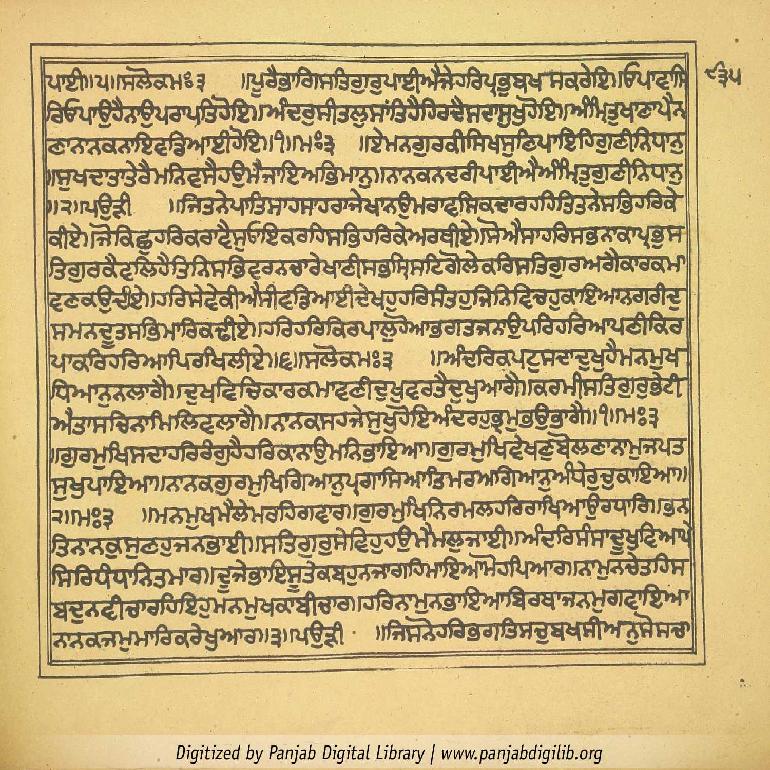 ਪਾਈ॥੫॥ਸਲੋਕਮਃ੩ ॥ਪੂਰੈਭਾਗਿਸਤਿਗੁਰੁਪਾਈਐਜੇਹਰਿਪ੍ਰਭੁਬਖਸਕਰੇਇ॥ਓਪਾਵਾਸਿ ੯੩੫
ਰਿਓਪਾਉਹੈਨਾਉਪਰਾਪਤਿਹੋਇ॥ਅੰਦਰੁਸੀਤਲੁਸਾਂਤਿਹੈਹਿਰਦੈਸਦਾਸੁਖੁਹੋਇ॥ਅੰਮ੍ਰਿਤੁਖਾਣਾਪੈਨ
ਣਾਨਾਨਕਨਾਇਵਡਿਆਈਹੋਇ॥੧॥ਮਃ੩ ॥ਏਮਨਗੁਰਕੀਸਿਖਸੁਣਿਪਾਇਹਿਗੁਣੀਨਿਧਾਨੁ
॥ਸੁਖਦਾਤਾਤੇਰੈਮਨਿਵਸੈਹਉਮੈਜਾਇਅਭਿਮਾਨੁ॥ਨਾਨਕਨਦਰੀਪਾਈਐਅੰਮ੍ਰਿਤੁਗੁਣੀਨਿਧਾਨੁ
॥੨॥ਪਉੜੀ ॥ਜਿਤਨੇਪਾਤਿਸਾਹਸਾਹਰਾਜੇਖਾਨਉਮਰਾਵਸਿਕਦਾਰਹਹਿਤਿਤਨੇਸਭਿਹਰਿਕੇ
ਕੀਏ॥ਜੋਕਿਛੁਹਰਿਕਰਾਵੈਸੁਓਇਕਰਹਿਸਭਿਹਰਿਕੇਅਰਥੀਏ॥ਸੋਐਸਾਹਰਿਸਭਨਾਕਾਪ੍ਰਭੁਸ
ਤਿਗੁਰਕੈਵਲਿਹੈਤਿਨਿਸਭਿਵਰਨਚਾਰੇਖਾਣੀਸਭਸ੍ਰਿਸਟਿਗੋਲੇਕਰਿਸਤਿਗੁਰਅਗੈਕਾਰਕਮਾ
ਵਣਕਉਦੀਏ॥ਹਰਿਸੇਵੇਕੀਐਸੀਵਡਿਆਈਦੇਖਹੁਹਰਿਸੰਤਹੁਜਿਨਿਵਿਚਹੁਕਾਇਆਨਗਰੀਦੁ
ਸਮਨਦੂਤਸਭਿਮਾਰਿਕਢੀਏ॥ਹਰਿਹਰਿਕਿਰਪਾਲੁਹੋਆਭਗਤਜਨਾਉਪਰਿਹਰਿਆਪਣੀਕਿਰ
ਪਾਕਰਿਹਰਿਆਪਿਰਖਿਲੀਏ॥੬॥ਸਲੋਕਮਃ੩ ॥ਅੰਦਰਿਕਪਟੁਸਦਾਦੁਖੁਹੈਮਨਮੁਖ
ਧਿਆਨੁਨਲਾਗੈ॥ਦੁਖਵਿਚਿਕਾਰਕਮਾਵਣੀਦੁਖੁਵਰਤੈਦੁਖੁਆਗੈ॥ਕਰਮੀਸਤਿਗੁਰੁਭੇਟੀ
ਐਤਾਸਚਿਨਾਮਿਲਿਵਲਾਗੈ॥ਨਾਨਕਸਹਜੇਸੁਖੁਹੋਇਅੰਦਰਹੁਭ੍ਰਮੁਭਉਭਾਗੈ॥੧॥ਮਃ੩
॥ਗੁਰਮੁਖਿਸਦਾਹਰਿਰੰਗੁਹੈਹਰਿਕਾਨਾਉਮਨਿਭਾਇਆ॥ਗੁਰਮੁਖਿਵੇਖਣੁਬੋਲਣਾਨਾਮੁਜਪਤ
ਸੁਖੁਪਾਇਆ॥ਨਾਨਕਗੁਰਮੁਖਿਗਿਆਨੁਪ੍ਰਗਾਸਿਆਤਿਮਰਅਗਿਆਨੁਅੰਧੇਰੁਚੁਕਾਇਆ॥
੨॥ਮਃ੩ ॥ਮਨਮੁਖਮੈਲੇਮਰਹਿਗਵਾਰ॥ਗੁਰਮੁਖਿਨਿਰਮਲਹਰਿਰਾਖਿਆਉਰਧਾਰਿ॥ਭਨ
ਤਿਨਾਨਕੁਸੁਣਹੁਜਨਭਾਈ॥ਸਤਿਗੁਰੁਸੇਵਿਹੁਹਉਮੈਮਲੁਜਾਈ॥ਅੰਦਰਿਸੰਸਾਦੂਖੁਵਿਆਪੇ
ਸਿਰਿਧੰਧਾਨਿਤਮਾਰ॥ਦੂਜੈਭਾਇਸੂਤੇਕਬਹੁਨਜਾਗਹਿਮਾਇਆਮੋਹਪਿਆਰ॥ਨਾਮੁਨਚੇਤਹਿਸ
ਬਦੁਨਵੀਚਾਰਹਿਇਹੁਮਨਮੁਖਕਾਬੀਚਾਰ॥ਹਰਿਨਾਮੁਨਭਾਇਆਬਿਰਥਾਜਨਮੁਗਵਾਇਆ
ਨਾਨਕਜਮੁਮਾਰਿਕਰੇਖੁਆਰ॥੩॥ਪਉੜੀ ॥ਜਿਸਨੋਹਰਿਭਗਤਿਸਚੁਬਖਸੀਅਨੁਸੋਸਚਾ
Digitized by Panjab Digital Library | www.panjabdigilib.org